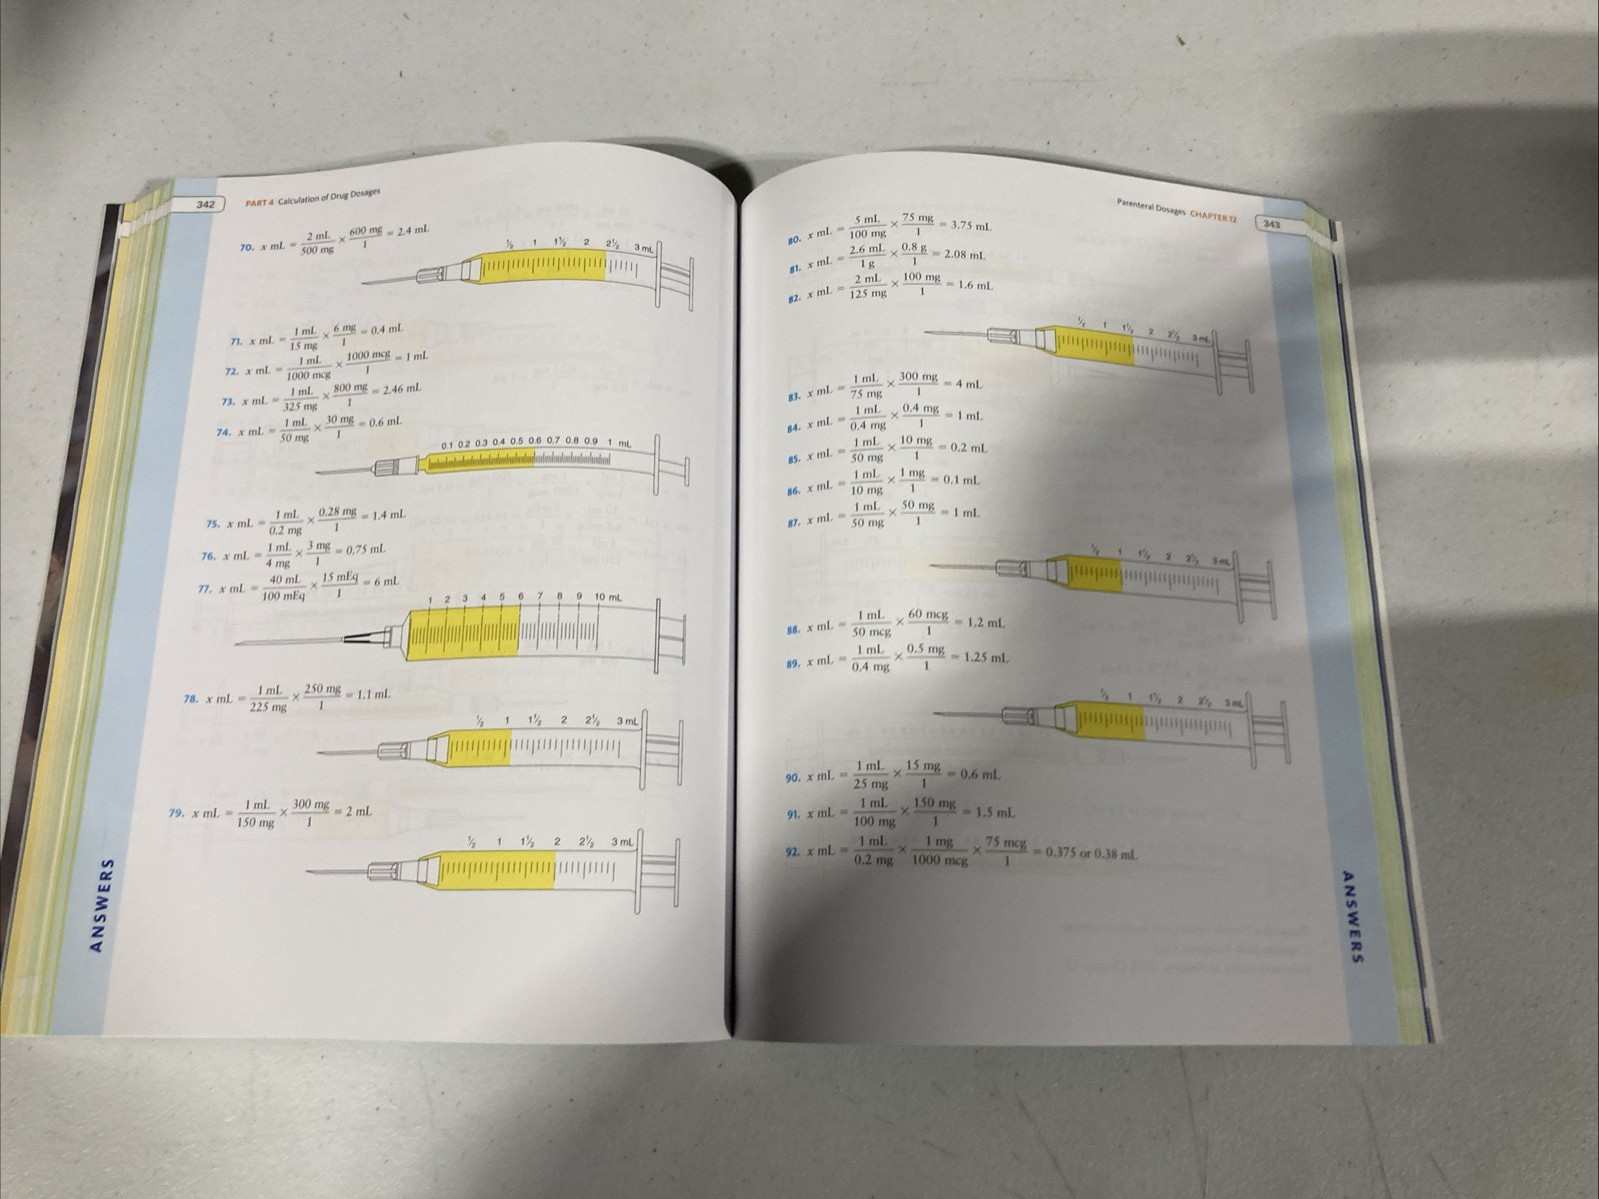 342 PART 4 Calculation of Drug Dosages
70. x mL = 2 mL / 500 mg × 600 mg / 1 = 2.4 mL
½ 1 1½ 2 2½ 3 mL
71. x mL = 1 mL / 15 mg × 6 mg / 1 = 0.4 mL
72. x mL = 1 mL / 1000 mcg × 1000 mcg / 1 = 1 mL
73. x mL = 1 mL / 325 mg × 800 mg / 1 = 2.46 mL
74. x mL = 1 mL / 50 mg × 30 mg / 1 = 0.6 mL
0.1 0.2 0.3 0.4 0.5 0.6 0.7 0.8 0.9 1 mL
75. x mL = 1 mL / 0.2 mg × 0.28 mg / 1 = 1.4 mL
76. x mL = 1 mL / 4 mg × 3 mg / 1 = 0.75 mL
77. x mL = 40 mL / 100 mEq × 15 mEq / 1 = 6 mL
1 2 3 4 5 6 7 8 9 10 mL
78. x mL = 1 mL / 225 mg × 250 mg / 1 = 1.1 mL
½ 1 1½ 2 2½ 3 mL
79. x mL = 1 mL / 150 mg × 300 mg / 1 = 2 mL
½ 1 1½ 2 2½ 3 mL
ANSWERS
Parenteral Dosages CHAPTER 12 343
80. x mL = 5 mL / 100 mg × 75 mg / 1 = 3.75 mL
81. x mL = 2.6 mL / 1 g × 0.8 g / 1 = 2.08 mL
82. x mL = 2 mL / 125 mg × 100 mg / 1 = 1.6 mL
½ 1 1½ 2 2½ 3 mL
83. x mL = 1 mL / 75 mg × 300 mg / 1 = 4 mL
84. x mL = 1 mL / 0.4 mg × 0.4 mg / 1 = 1 mL
85. x mL = 1 mL / 50 mg × 10 mg / 1 = 0.2 mL
86. x mL = 1 mL / 10 mg × 1 mg / 1 = 0.1 mL
87. x mL = 1 mL / 50 mg × 50 mg / 1 = 1 mL
½ 1 1½ 2 2½ 3 mL
88. x mL = 1 mL / 50 mcg × 60 mcg / 1 = 1.2 mL
89. x mL = 1 mL / 0.4 mg × 0.5 mg / 1 = 1.25 mL
½ 1 1½ 2 2½ 3 mL
90. x mL = 1 mL / 25 mg × 15 mg / 1 = 0.6 mL
91. x mL = 1 mL / 100 mg × 150 mg / 1 = 1.5 mL
92. x mL = 1 mL / 0.2 mg × 1 mg / 1000 mcg × 75 mcg / 1 = 0.375 or 0.38 mL
ANSWERS